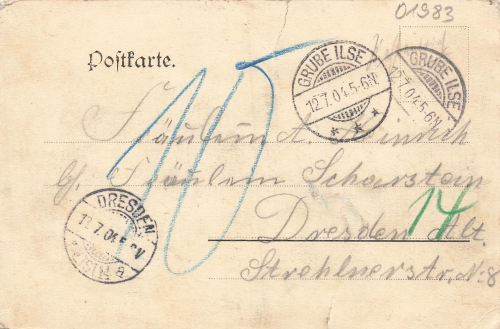 01983
Postkarte.
10
GRUBE ILSE
12.7.04.5-6N.
* * *
GRUBE ILSE
12.7.04.5-6N.
Fräulein A.
b/. Fräulein Scharstein
14
Dresden Alt.
Strehlnerstr, No. 8
DRESDEN
12.7.04